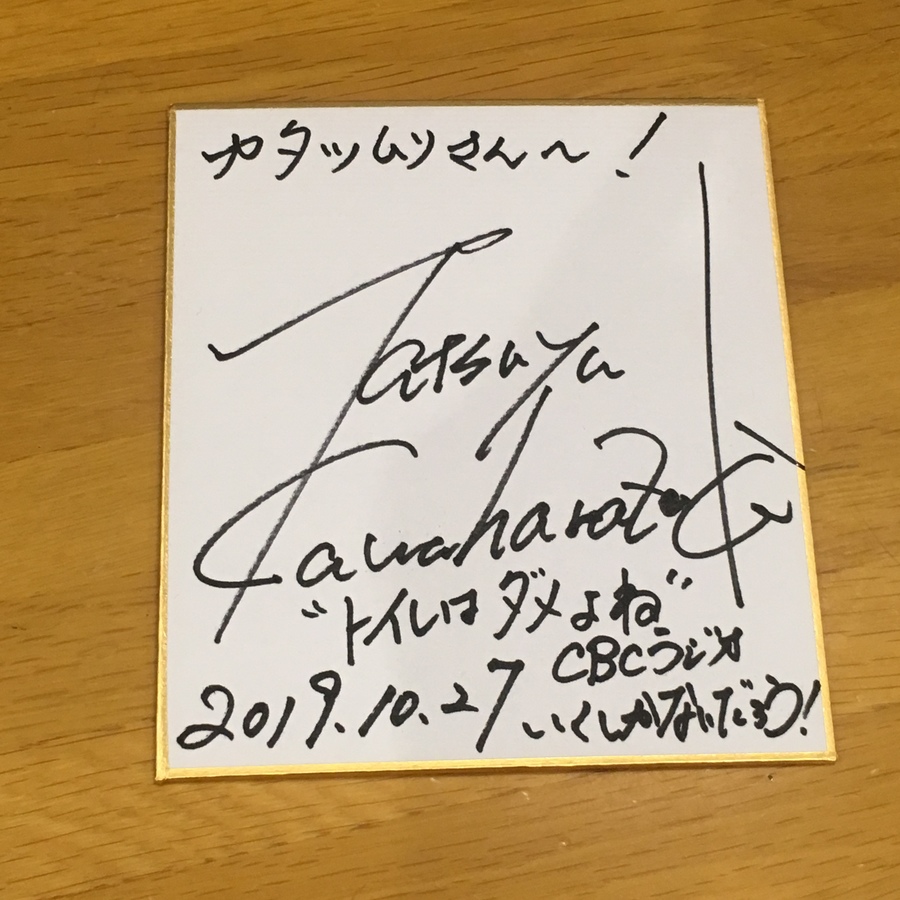 カタツムリさん〜!
Tatsuya
Kawahara
"トイレはダメよね"
CBCラジオ
2019.10.27 いくしかないだろう!